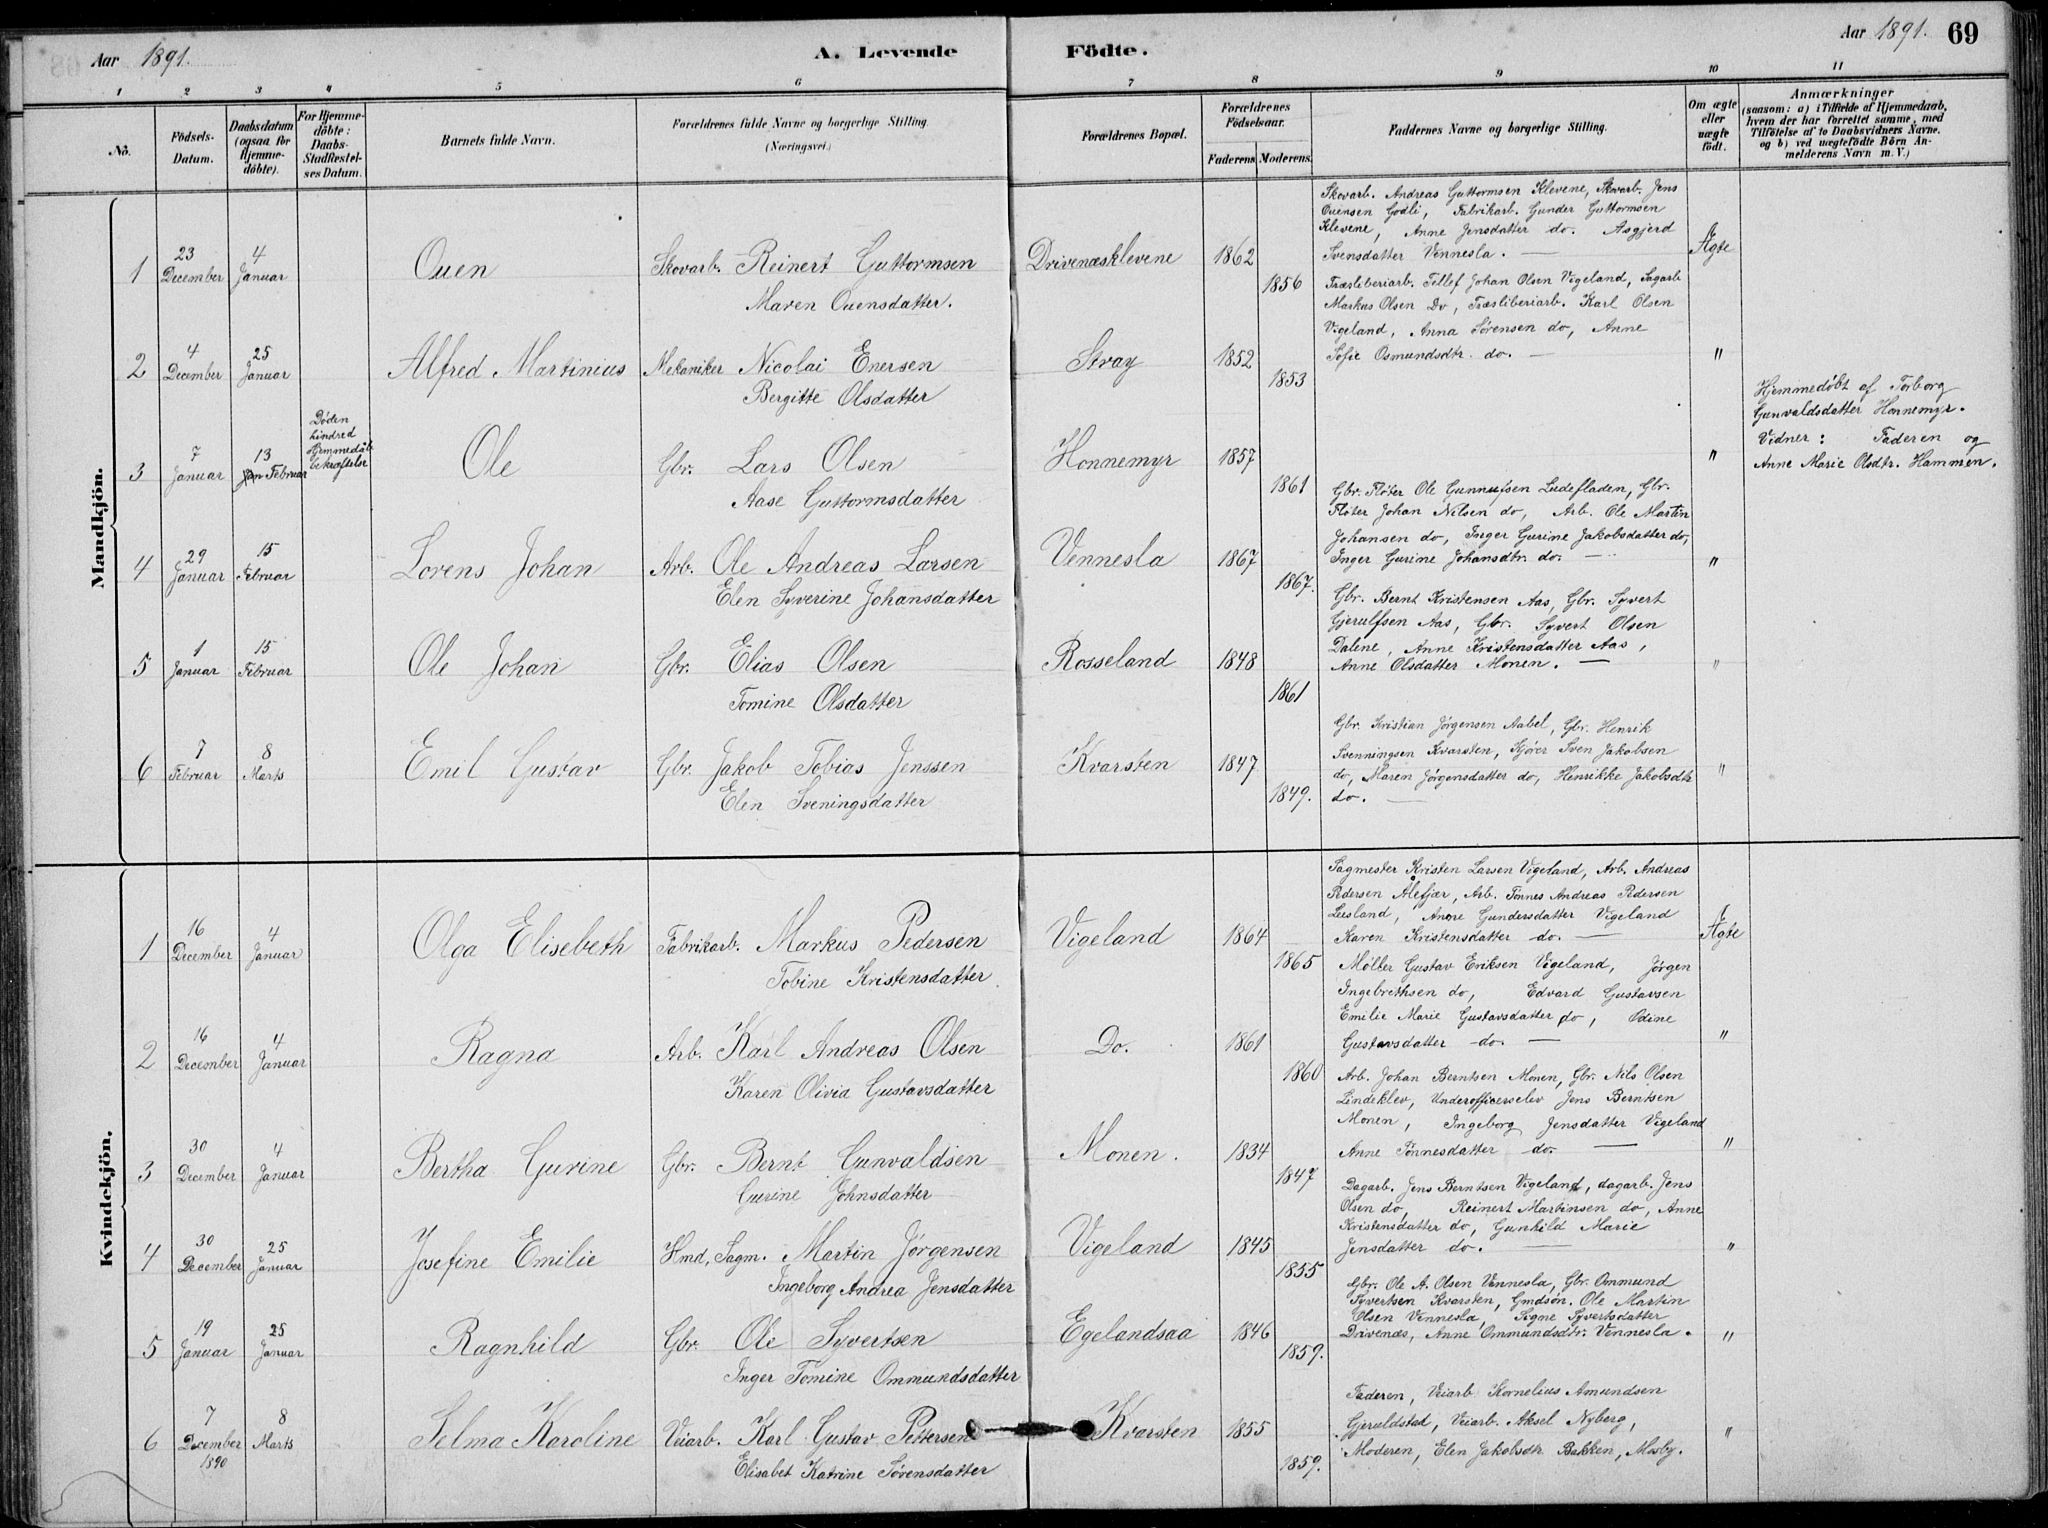 Aar 1891. A. Levende Födte. Aar 1891. 69
1 2 3 4 5 6 7 8 9 10 11
No. Födsels-Datum. Daabsdatum (ogsaa for Hjemme-döbte). For Hjemme-döbte: Daabs-Stadfæstel-ses Datum. Barnets fulde Navn. Forældrenes fulde Navne og borgerlige Stilling. (Næringsvei.) Forældrenes Bopæl. Forældrenes Födselsaar. Faderens. Moderens. Faddernes Navne og borgerlige Stilling. Om ægte eller uægte födt. Anmærkninger (saasom: a) i Tilfælde af Hjemmedaab, hvem der har forrettet samme, med Tilföielse af to Daabsvidners Navne. og b) ved uægtefödte Börn An-melderens Navn m. V.)
Mandkjön.
Skovarb. Andreas Guttormsen Klevene, Skovarb. Jens
Ouensen Godli, Fabrikarb. Gunder Guttormsen
Klevene, Anne Jensdatter do. Asgjerd
1 23 December 4 Januar Ouen Skovarb. Reinert Guttormsen Drivenæsklevene 1862 Svensdatter Vennesla. — Ægte
Maren Ouensdatter. 1856
Træsliberiarb. Tellef Johan Olsen Vigeland, Sagarb
Markus Olsen Do, Træsliberiarb. Karl Olsen
Vigeland, Anna Sørensen do, Anne
2 4 December 25 Januar Alfred Martinius Mekaniker Nicolai Enersen Stray 1852 Sofie Osmundsdtr. do. — "
Bergitte Olsdatter 1853
Hjemmedøbt af Torborg
Gunvaldsdatter Honnemyr.
Vidner: Faderen og
Anne Marie Olsdtr. Hammen.
3 7 Januar 13 Februar Døden hindred Hjemmedåb bekræftelse Ole Gbr. Lars Olsen Honnemyr 1857 "
Aase Guttormsdatter 1861
Gbr. Fløter Ole Gunnufsen Ludefladen, Gbr.
Fløter Johan Nilsen do, Arb. Ole Martin
Johansen do, Inger Gurine Jakobsdatter do,
4 29 Januar 15 Februar Lorens Johan Arb. Ole Andreas Larsen Vennesla 1867 Inger Gurine Johansdtr. do. — "
Elen Syverine Johansdatter 1867.
Gbr. Bernt Kristensen Aas, Gbr. Syvert
Gjerulfsen Aas, Gbr. Syvert Olsen
Dalene, Anne Kristensdatter Aas,
5 1 Januar 15 Februar Ole Johan Gbr. Elias Olsen Rosseland 1848 Anne Olsdatter Monen. — "
Tomine Olsdatter 1861
Gbr. Kristian Jørgensen Aabel, Gbr. Henrik
Svenningsen Kvarsten, Kjører Sven Jakobsen
6 7 Februar 8 Marts Emil Gustav Gbr. Jakob Tobias Jenssen Kvarsten 1847 do, Maren Jørgensdatter do, Henrikke Jakobsdtr "
Elen Sveningsdatter 1849. do. —
Kvindekjön.
Sagmester Kristen Larsen Vigeland, Arb. Andreas
Pedersen Ålefjær, Arb. Tønnes Andreas Pedersen
Leesland, Anne Gundersdatter Vigeland
1 16 December 4 Januar Olga Elisebeth Fabrikarb. Markus Pedersen Vigeland 1864 Karen Kristensdatter do. — Ægte
Tobine Kristensdatter 1865
Møller Gustav Eriksen Vigeland, Jørgen
Ingebrethsen do, Edvard Gustavsen
Emilie Marie Gustavsdatter do, Odine
2 16 December 4 Januar Ragna Arb. Karl Andreas Olsen Do. 1861 Gustavsdatter do. — "
Karen Olivia Gustavsdatter 1860
Arb. Johan Berntsen Monen, Gbr. Nils Olsen
Lindeklev, Underofficerselev Jens Berntsen
Monen, Ingeborg Jensdatter Vigeland
3 30 December 4 Januar Bertha Gurine Gbr. Bernt Gunvaldsen Monen. 1834 Anne Tønnesdatter do. — "
Gurine Johnsdatter 1847
Dagarb. Jens Berntsen Vigeland, dagarb. Jens
Olsen do, Reinert Martinsen do, Anne
Kristensdatter do, Gunhild Marie
4 30 December 25 Januar Josefine Emilie Hmd, Sagm. Martin Jørgensen Vigeland 1845 Jensdatter do. — "
Ingeborg Andrea Jensdatter 1855
Gbr. Ole A. Olsen Vennesla, Gbr. Ommund
Syvertsen Kvarsten, Gmdsøn. Ole Martin
Olsen Vennesla, Signe Syvertsdatter
5 19 Januar 25 Januar Ragnhild Gbr. Ole Syvertsen Egelandsaa 1846 Drivenæs, Anne Ommundsdtr. Vennesla. "
Inger Tomine Ommundsdatter 1859.
Faderen, Veiarb Kornelius Amundsen
6 7 December 1890 8 Marts Selma Karoline Veiarb. Karl Gustav Pettersen Kvarsten 1855 Gjeruldstad, Veiarb. Aksel Nyberg, "
Elisabet Katrine Sørensdatter 1859. Moderen, Elen Jakobsdtr Bakken, Mosby.